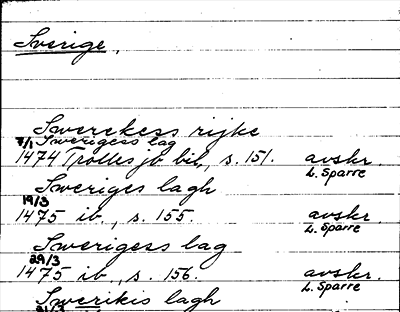 Sverige.
Swerckess rijke
7/1 Swerigess lag
1474 Trolles jb bil, s. 151. avskr.
L. Sparre
Sweriges lagh
19/3
1475 ib., s. 155. avskr.
L. Sparre
Swerigess lag
29/3
1475 ib., s. 156. avskr.
L. Sparre
Swerikis lagh